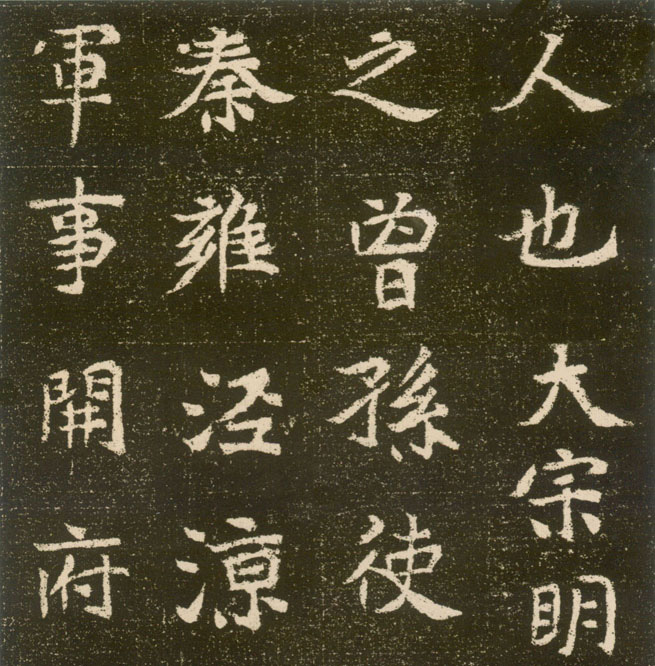 人也大宗明
之曾孫使
秦雍涇涼
軍事開府